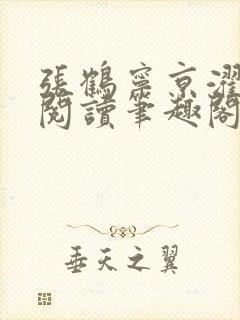 張鶴寧京濯
閱讀筆趣閣
垂天之翼